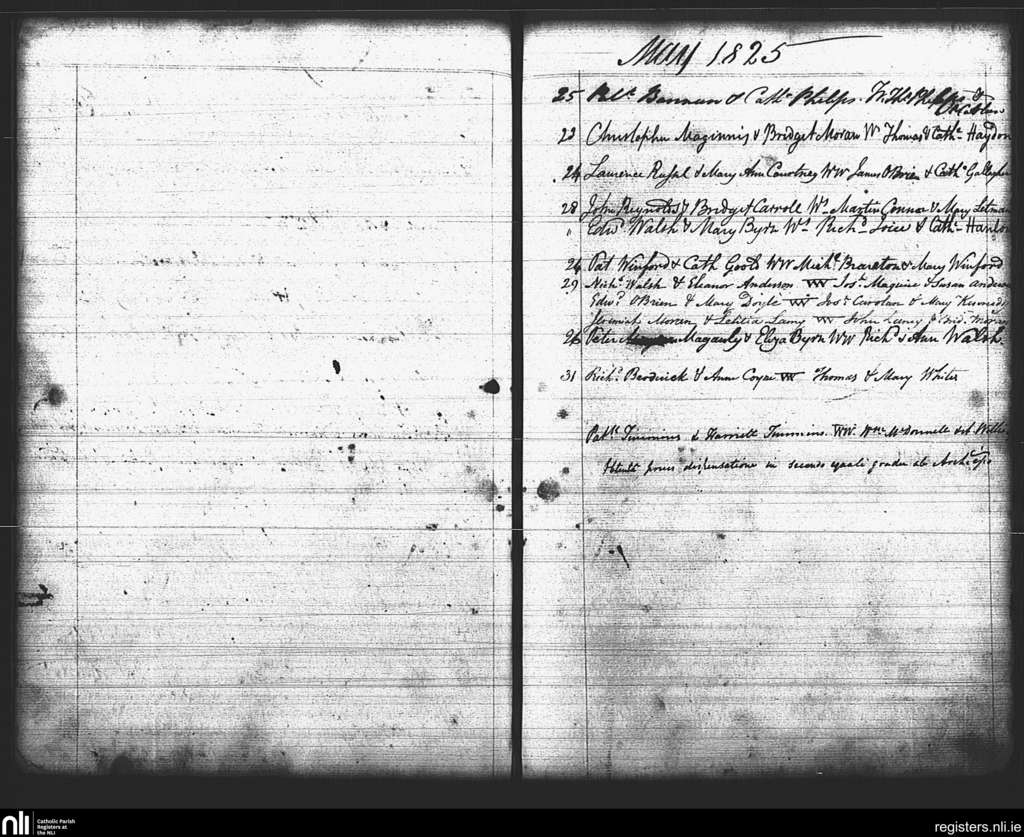 May 1825
25 Bannan & Cathn Phelps. W. Ths Phelps &
22 Christopher Maginnis & Bridget Moran Ws Thomas & Cathn Haydon
24 Laurence & Mary Ann Courtney WW James OBrien & Cathn Gallagher
28 John Reynolds & Bridget Carroll Ws Martin Connor & Mary
" Edwd Walsh & Mary Byrn Ws Richd Joice & Cathn Hanlon
26 Pat Winford & Cath WW Michl & Mary Winford
29 Nichs Walsh & Eleanor Anderson WW Josh Maguire & Susan
Edwd OBrien & Mary Doyle WW Carolan & Mary Kennedy
Jeremiah Moran & Letitia Lamy WW John Lamy &
26 Peter Magauly & Eliza Byrn WW Richd & Ann Walsh
31 Richd Brodrick & Ann Coyne WW Thomas & Mary White
Patk Timmins & Harriett Timmins. WW. Wm McDonnell &
dispensatione in secondo equali gradu ab
nli Catholic Parish
Registers at
the NLI
registers.nli.ie